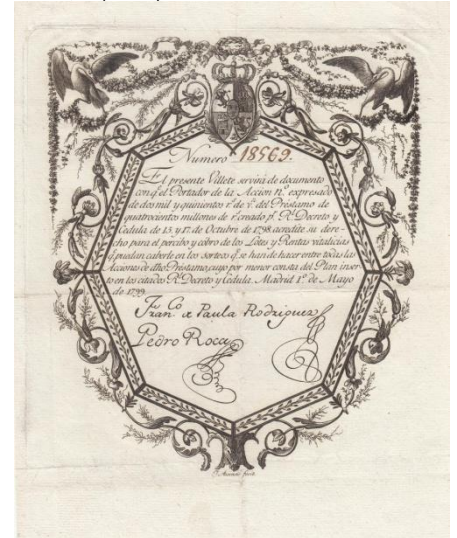 Numero 18569.
El presente Villete servirá de documento
con q.e el Portador de la Accion n.o expresado
de dos mil y quinientos r.s de v.n del Préstamo de
quatrocientos millones de r.s creado p.r R.l Decreto y
Cédula de 15. y 17. de Octubre de 1798. acredite su dere-
cho para el percibo y cobro de los Lotes y Rentas vitalicias
q.e puedan caberle en los sorteos q.e se han de hacer entre todas las
Acciones de dho Préstamo, cuyo por menor consta del Plan inser-
to en los citados R.l Decreto y Cédula. Madrid 1.o de Mayo
de 1799.
Fran.co a Paula Rodriguez
Pedro Roca